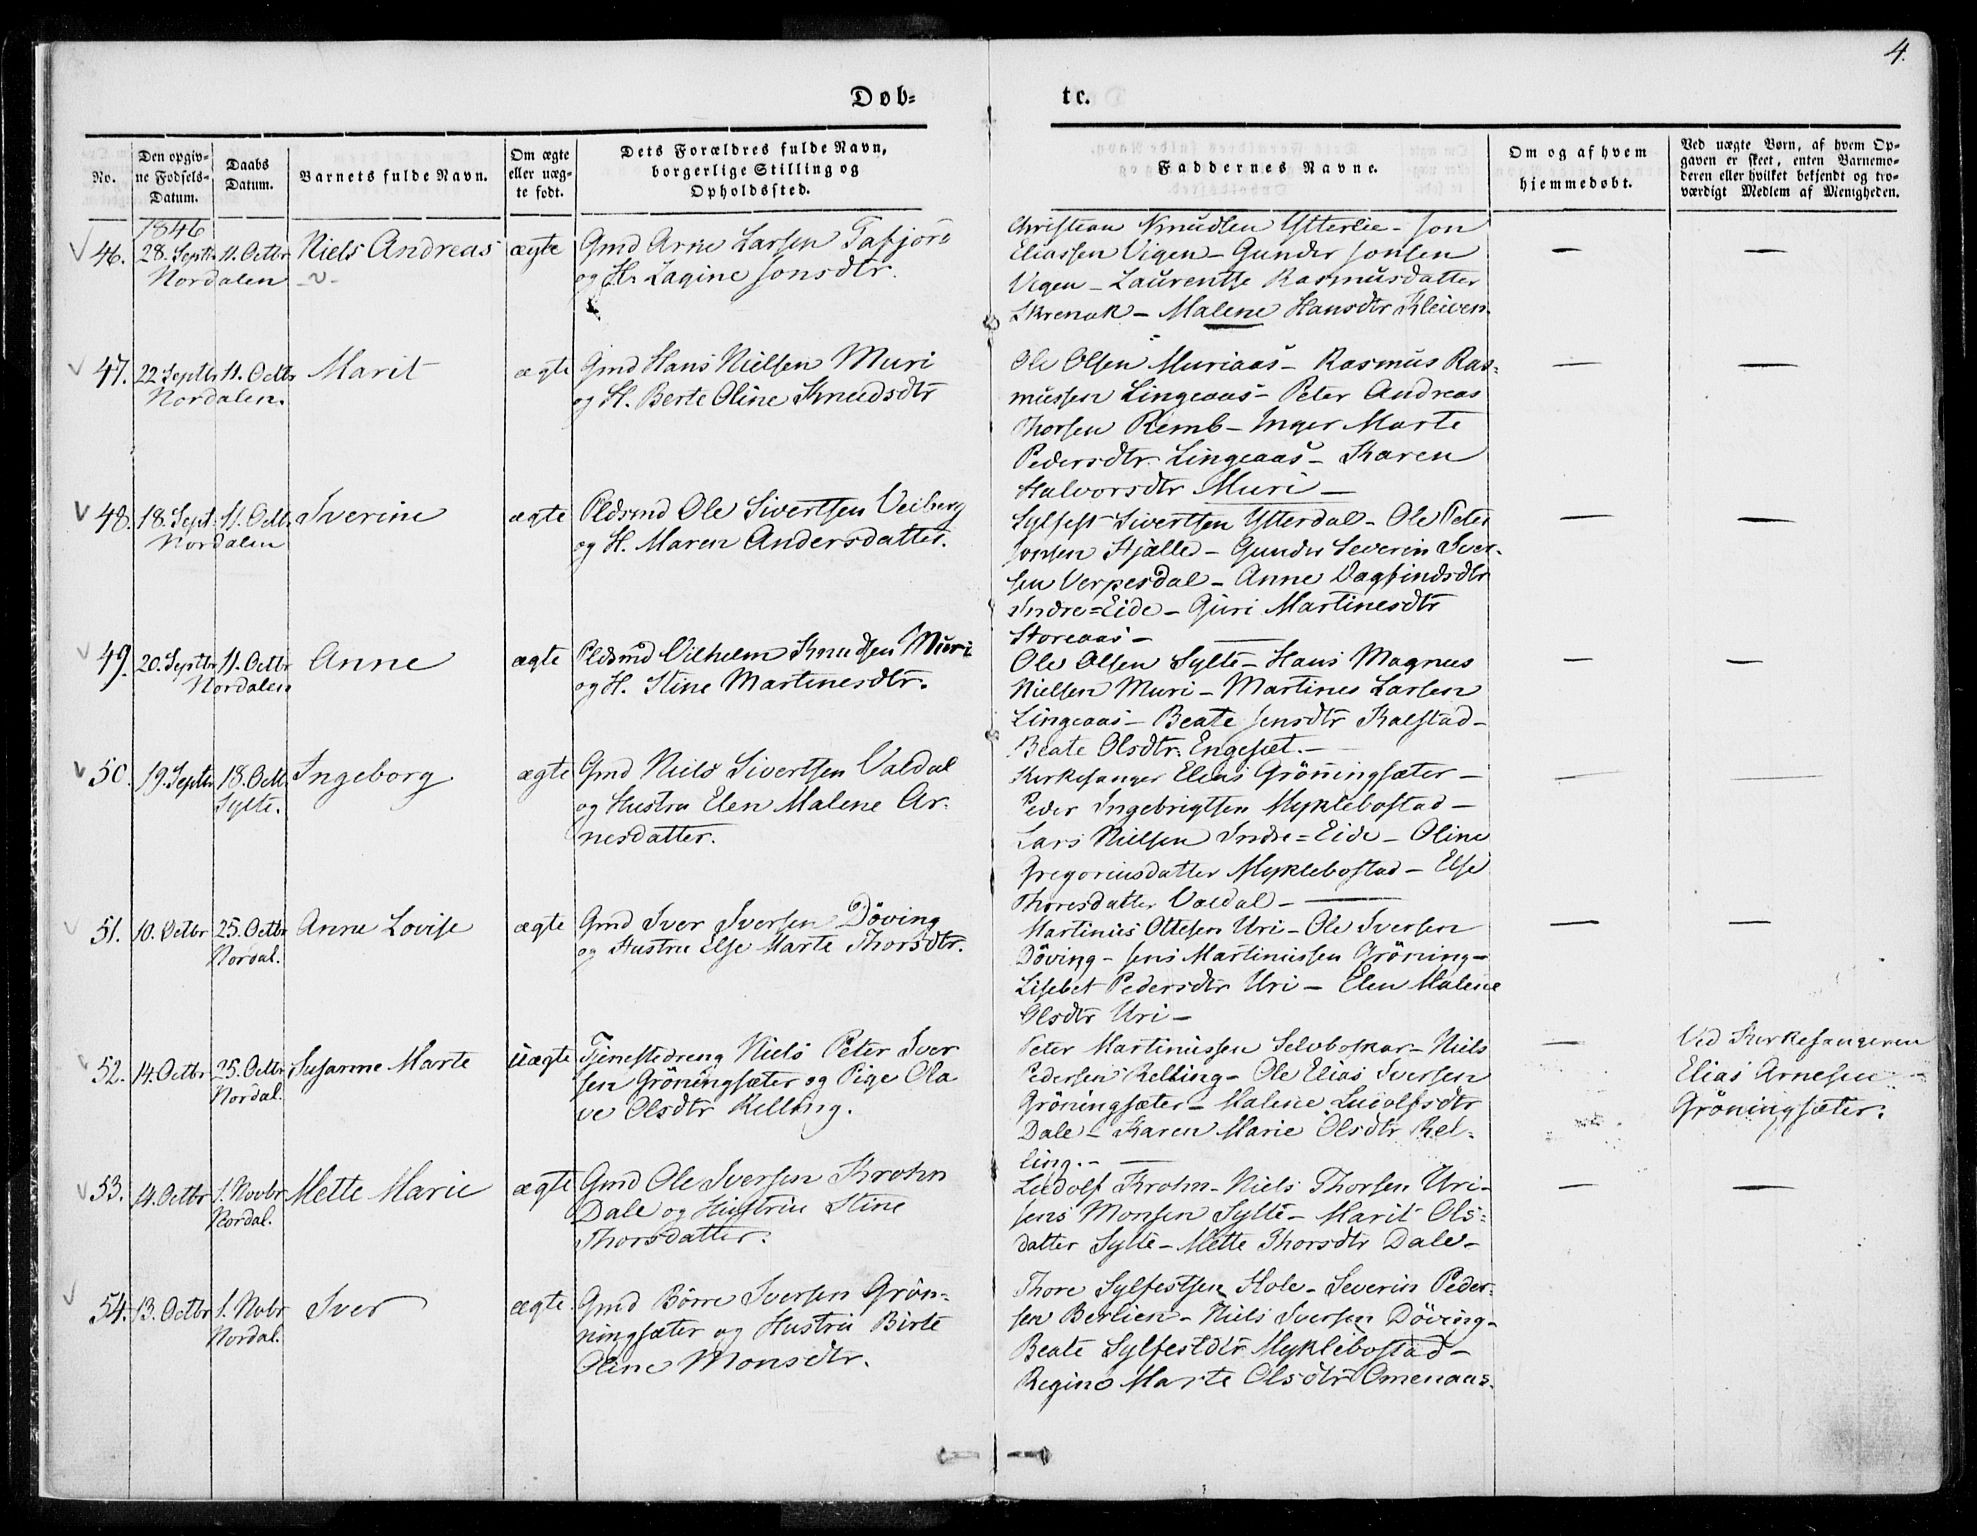 4.
Døb- te.
No.
Den opgivne Fødsels-Datum.
Daabs Datum.
Barnets fulde Navn.
Om ægte eller uægte født.
Dets Forældres fulde Navn, borgerlige Stilling og Opholdssted.
Faddernes Navne.
Om og af hvem hjemmedøbt.
Ved uægte Børn, af hvem Opgaven er skeet, enten Barnemoderen eller hvilket bekjendt og troværdigt Medlem af Menigheden.
1846
46. 28. Septbr 11. Octbr Niels Andreas ægte Gmd Arne Larsen Tafjord
Nordalen og H. Lagine Jonsdtr.
Christian Knudsen Ytterlie - Jon
Eliassen Vigen - Gunder Jonsen
Vigen - Laurentse Rasmusdatter
Skrenak - Malene Hansdtr Kleiven.
47. 22 Septbr 11. Octbr Marit ægte Gmd Hans Nielsen Muri
Nordalen. og H. Berte Oline Knudsdtr
Ole Olsen Muriaas - Rasmus Ras-
mussen Lingeaas - Peter Andreas
Thorsen Remb - Inger Marte
Pedersdtr Lingeaas - Karen
Halvorsdtr Muri -
48. 18. Sept. 11. Octbr Iverine ægte Pldsmd Ole Sivertsen Veiberg
Nordalen og H. Maren Andersdatter.
Sylfest Sivertsen Ytterdal - Ole Peter
Jonsen Hjælled - Gunder Severin Iver-
sen Verpesdal - Anne Dagfindsdtr
Indre=Eide - Guri Martinesdtr
Storeaas -
49. 20. Septbr 11. Octbr Anne ægte Pldsmd Vilhelm Knudsen Muri
Nordalen og H. Stine Martinesdtr.
Ole Olsen Sylte - Hans Magnus
Nielsen Muri - Martines Larsen
Lingeaas - Beate Jensdtr Kalstad -
Beate Olsdtr. Engeset. -
50. 19. Septbr 18. Octbr Ingeborg ægte Gmd Niels Sivertsen Valdal
Sylte. og Hustru Elen Malene Ar-
nesdatter.
Kirkesanger Elias Grönningsæter -
Peder Ingebrigtsen Myklebostad -
Lars Nielsen Indre=Eide - Oline
Gregoriusdatter Myklebostad - Else
Thoresdatter Valdal -
51. 10. Octbr 25. Octbr Anne Lovise ægte Gmd Iver Iversen Döving
Nordal. og Hustru Else Marte Thorsdtr.
Martinus Ottesen Uri - Ole Iversen
Döving - Jens Martinussen Gröning -
Lisebet Pedersdtr Uri - Elen Malene
Olsdtr Uri -
52. 14. Octbr 25. Octbr Susanne Marte uægte Tjenestedreng Niels Peter Iver
Nordal. sen Gröningsæter og Pige Ola
ve Olsdtr Relling.
Peter Martinussen Selvboskar - Niels
Pedersen Relling - Ole Elias Iversen
Gröningsæter - Malene Ludolfsdtr
Dale - Karen Marie Olsdtr Rel-
ling. -
Ved Kirkesangeren
Elias Arnesen
Gröningsæter.
53. 14. Octbr 1. Novbr Mette Marie ægte Gmd Ole Iversen Krohn
Nordal. Dale og Hustrue Stine
Thorsdatter.
Ludolf Krohn - Niels Thorsen Uri -
Jens Monsen Sylte - Marit Ols-
datter Sylte - Mette Thorsdtr Dale -
54. 13. Octbr 1. Nvbr Iver ægte. Gmd Börre Iversen Grön-
Nordal. ningsæter og Hustru Birte
Oline Monsdtr.
Thore Sylfestsen Hole - Severin Peder-
sen Berlien - Niels Iversen Döving -
Beate Sylfestdtr Myklebostad -
Regine Marte Olsdtr Omenaas.